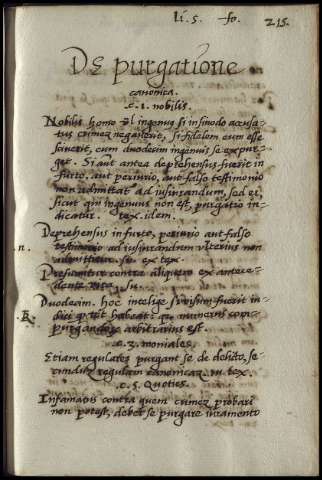 li. 5. fo. 215.
De purgatione
canonica.
c. 1. nobilis.
Nobilis homo vel ingenuus si in sinodo accusa-
tus crimen negauerit, si fidelem eum esse
sciuerit, cum duodecim ingenuis se expur-
get. Si aut antea deprehensus fuerit in
furto, aut periurio, aut falso testimonio
non admittat ad iusiurandum, sed et
sicut qui ingenuus non est, purgatio in-
dicatur. tex. idem.
Deprehensus in furto, periurio aut falso
.n. testimonio ad iusiurandum vlterius non
admittitur. se ex tex
Presumitur contra aliquem ex antece-
dente
Duodecim. hoc intelige
R. dici habeat numerus con-
purgandor arbitrarius est.
c. 2. moniales.
Etiam regulares purgant se de delicto, se-
tex
c. 5. Quoties.
Infamatus contra quem crimen probari
non potest, debet se purgare iuramento